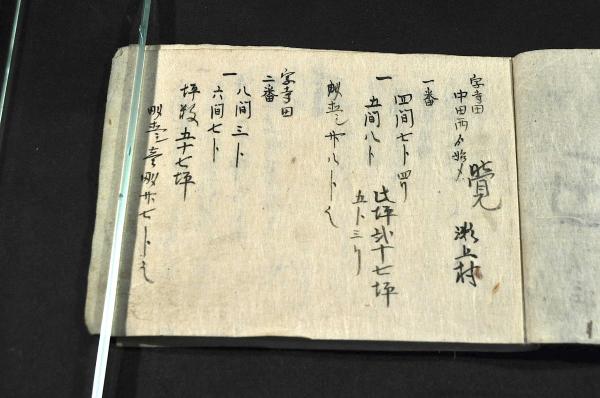 覚
瀬上村
字寺田
中田西ゟ始メ
一番
四間七ト四リ
一
五間八ト
此坪弐十七坪
五ト三リ
廿八ト
字寺田
二番
八間三ト
一
六間七ト
坪数五十七坪
廿七ト